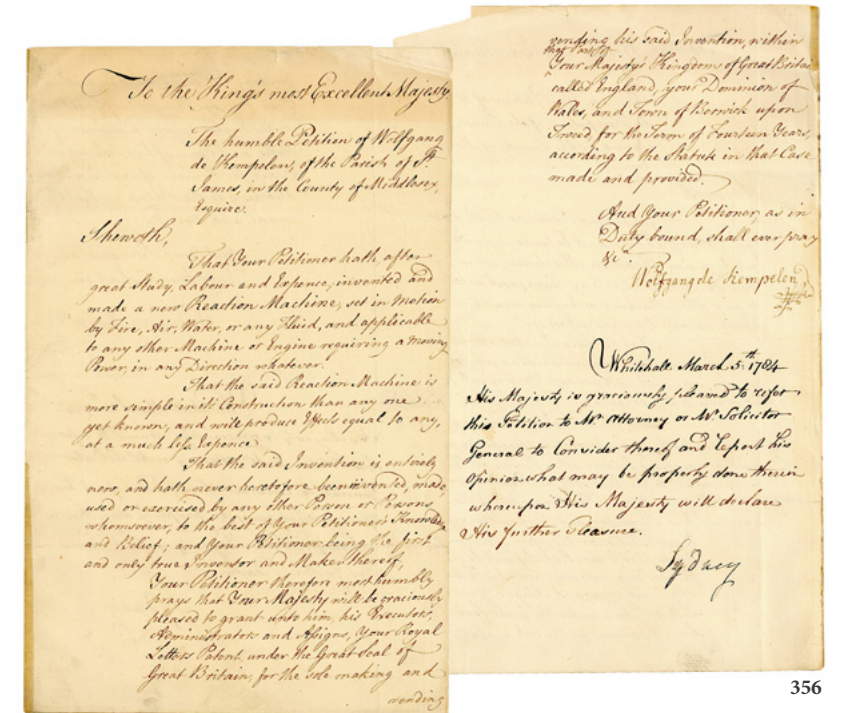 To the King's most Excellent Majesty
The humble Petition of Wolfgang
de Kempelen, of the Parish of St.
James, in the County of Middlesex,
Esquire.
Sheweth,
That Your Petitioner hath after
great Study, Labour and Expence, invented and
made a new Reaction Machine, set in Motion
by Fire, Air, Water, or any Fluid, and applicable
to any other Machine or Engine requiring a Moving
Power, in any Direction whatever.
That the said Reaction Machine is
more simple in its Construction than any one
yet known, and will produce Effects equal to any,
at a much less Expence
That the said Invention is entirely
new, and hath never heretofore been invented, made,
used or exercised by any other Person or Persons
whomsoever, to the best of Your Petitioner's Knowledge
and Belief; and Your Petitioner being the first
and only true Inventor and Maker thereof,
Your Petitioner therefore most humbly
prays that Your Majesty will be graciously
pleased to grant unto him, his Executors,
Administrators and Assigns, Your Royal
Letters Patent, under the Great Seal of
Great Britain, for the sole making and
vending
vending his said Invention, within
that Part of
Your Majesty's Kingdom of Great Britain
called England, your Dominion of
Wales, and Town of Berwick upon
Tweed for the Term of Fourteen Years,
according to the Statute in that Case
made and provided.
And Your Petitioner, as in
Duty bound, shall ever pray
&c.
Wolfgang de Kempelen
Whitehall March 5th 1784
His Majesty is graciously pleased to refer
this Petition to Mr. Attorney or Mr. Solicitor
General to Consider thereof and Report his
Opinion what may be properly done therein
whereupon His Majesty will declare
His further Pleasure.
Sydney
356